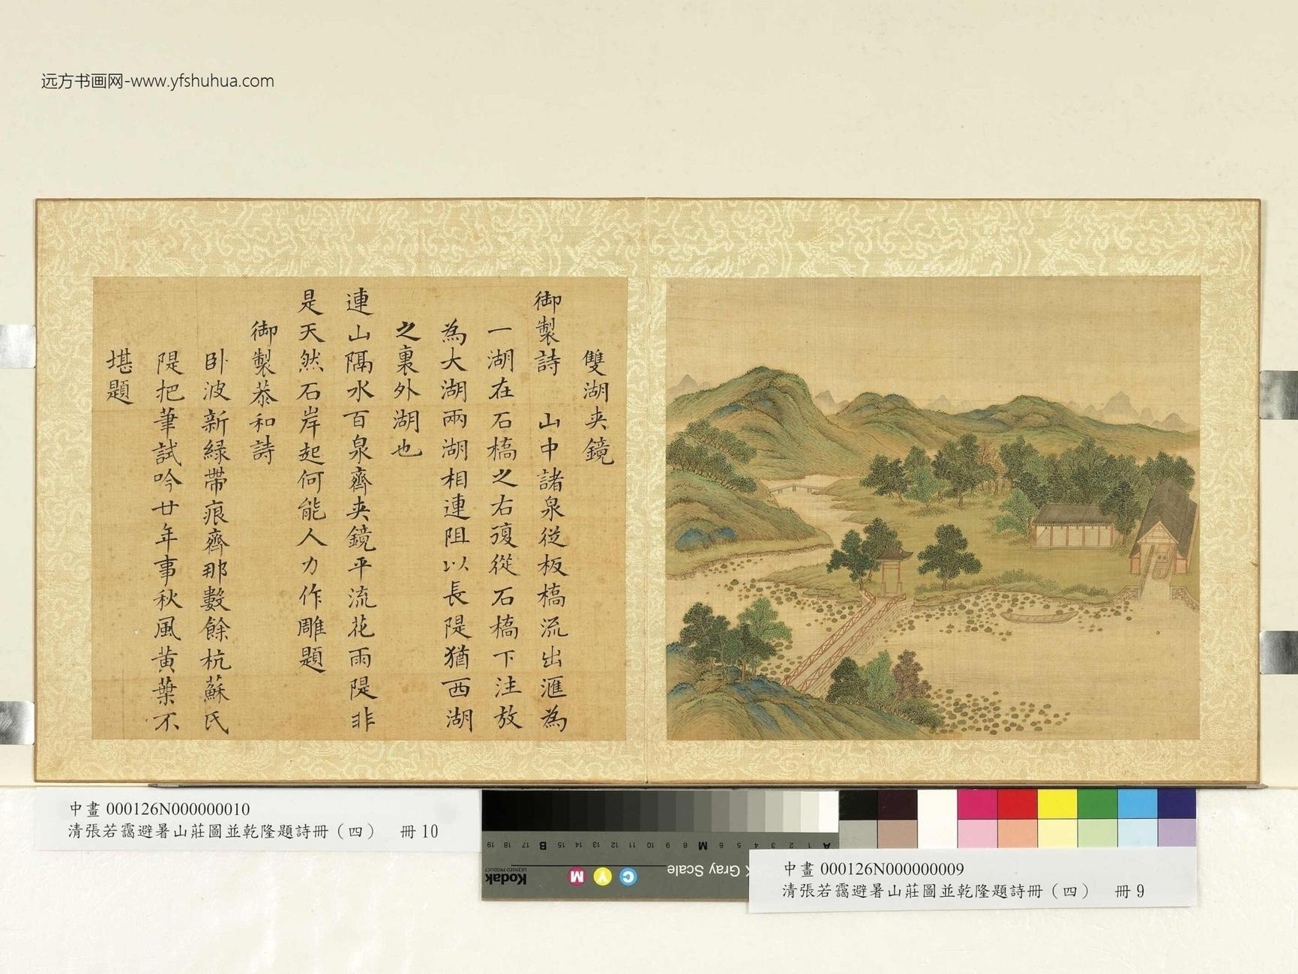 远方书画网-www.yfshuhua.com
雙湖夾鏡
御製詩 山中諸泉從板橋流出滙為
一湖在石橋之右復從石橋下注放
為大湖兩湖相連阻以長隄猶西湖
之裏外湖也
連山隔水百泉齊夾鏡平流花雨隄非
是天然石岸起何能人力作雕題
御製恭和詩
卧波新緑帶痕齊那數餘杭蘇氏
隄把筆試吟廿年事秋風黄葉不
堪題
中畫 000126N000000010
清張若靄避暑山莊圖並乾隆題詩冊（四） 冊 10
中畫 000126N000000009
清張若靄避暑山莊圖並乾隆題詩冊（四） 冊 9
Kodak
LICENSED PRODUCT
Gray Scale
C
Y
M
A 1 2 3 4 5 6 M 8 9 10 11 12 13 14 15 B 17 18 19